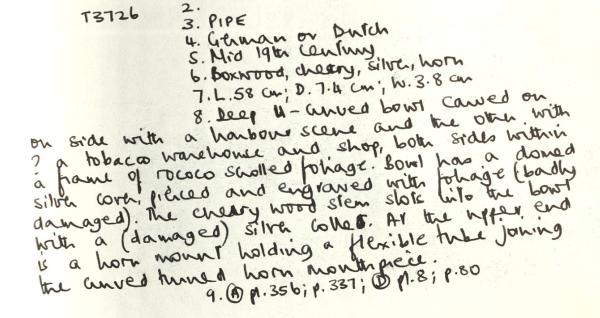 T3726 2.
3. PIPE
4. German or Dutch
5. Mid 19th century
6. Boxwood, cherry, silver, horn
7. L.58 cm; D.7.4 cm; W.3.8 cm
8. Deep U-curved bowl carved on
on side with a harbour scene and the other with
? a tobacco warehouse and shop, both sides within
a frame of rococo scrolled foliage. Bowl has a domed
silver cover, pierced and engraved with foliage (badly
damaged). The cherry wood stem slots into the bowl
with a (damaged) silver collar. At the upper end
is a horn mount holding a flexible tube joining
the curved turned horn mouthpiece.
9. Ⓐ pl.356; p.337; Ⓓ pl.8; p.80